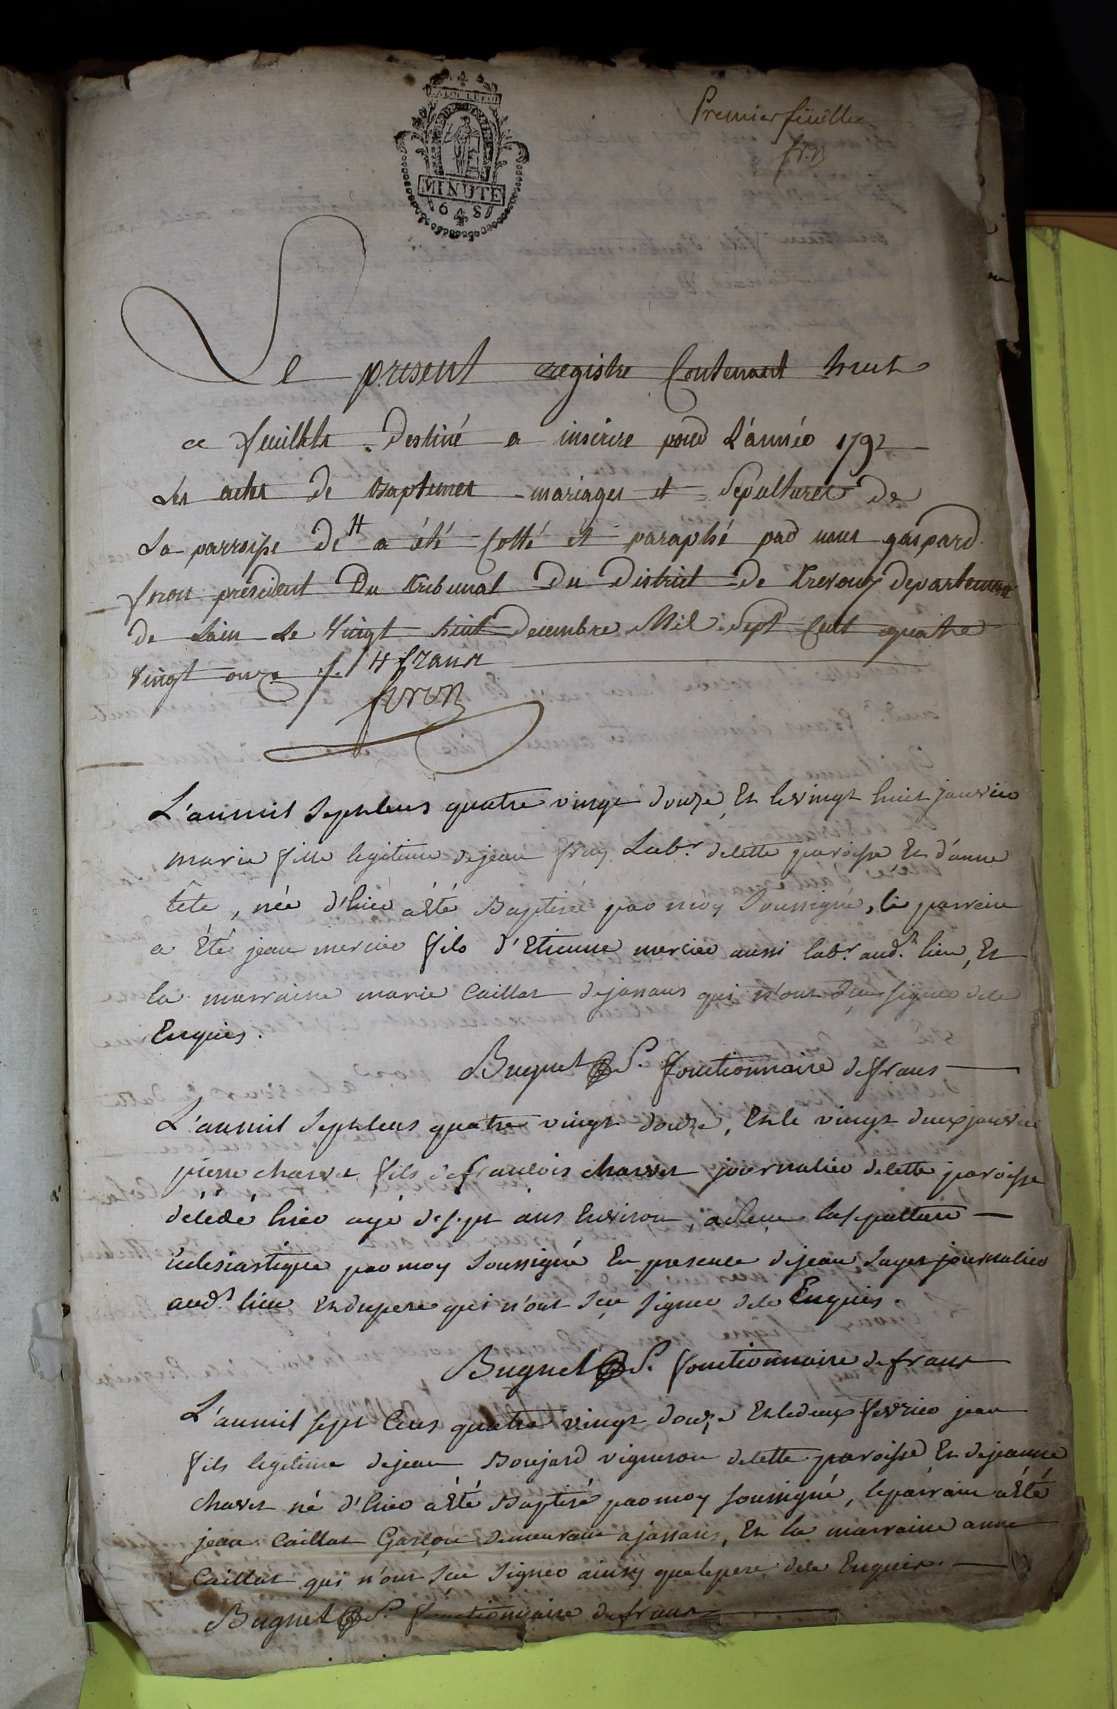 Premier feüillet
f.r.n
MINUTE
Le present registre Contenant huit
feuillets destiné a inscrire pour L'année 1792
Les actes de Baptemes mariages et Sepultures de
La parroisse de # a été Cotté et paraphé par nous gaspard
président Du tribunal Du District de trevoux departement
de Lain Le Vingt huit Decembre Mil Sept Cent quatre
Vingt onze # frans
L'an mil Septcens quatre vingt douze, Et le vingt huit janvier
marie fille legitime de jean Lab.r de cette paroisse Et d'anne
tête, née d'hier a Eté Baptisée par moy Soussigné, le parrain
a Eté jean mercier fils d'Etienne mercier aussi lab.r aud.t lieu, Et
la marraine marie Caillat de jassans qui n'ont Sçu signer de ce
Enquis.
Bugnet P. fonctionnaire de frans
L'an mil Septcens quatre vingt douze, Et le vingt deux janvier
pierre charvet fils de francois charvet journalier de cette paroisse
décédé hier agé de sept ans Environ, a Reçu la sepulture
Ecclesiastique par moy Soussigné En presence de jean Sayet journalier
aud.t lieu Et du pere qui n'ont Sçu signer de ce Enquis.
Bugnet P. fonctionnaire de frans
L'an mil sept Cens quatre vingt douze Et le deux fevrier jean
fils legitime de jean Boujard vigneron de cette paroisse Et de jeanne
charvet né d'hier a Eté Baptisé par moy soussigné, le parrain a Eté
jean Caillat Garçon demeurant a jassans, Et la marraine anne
Caillat qui n'ont Sçu Signer ainsy que le pere de ce Enquis.
Bugnet P. fonctionnaire de frans